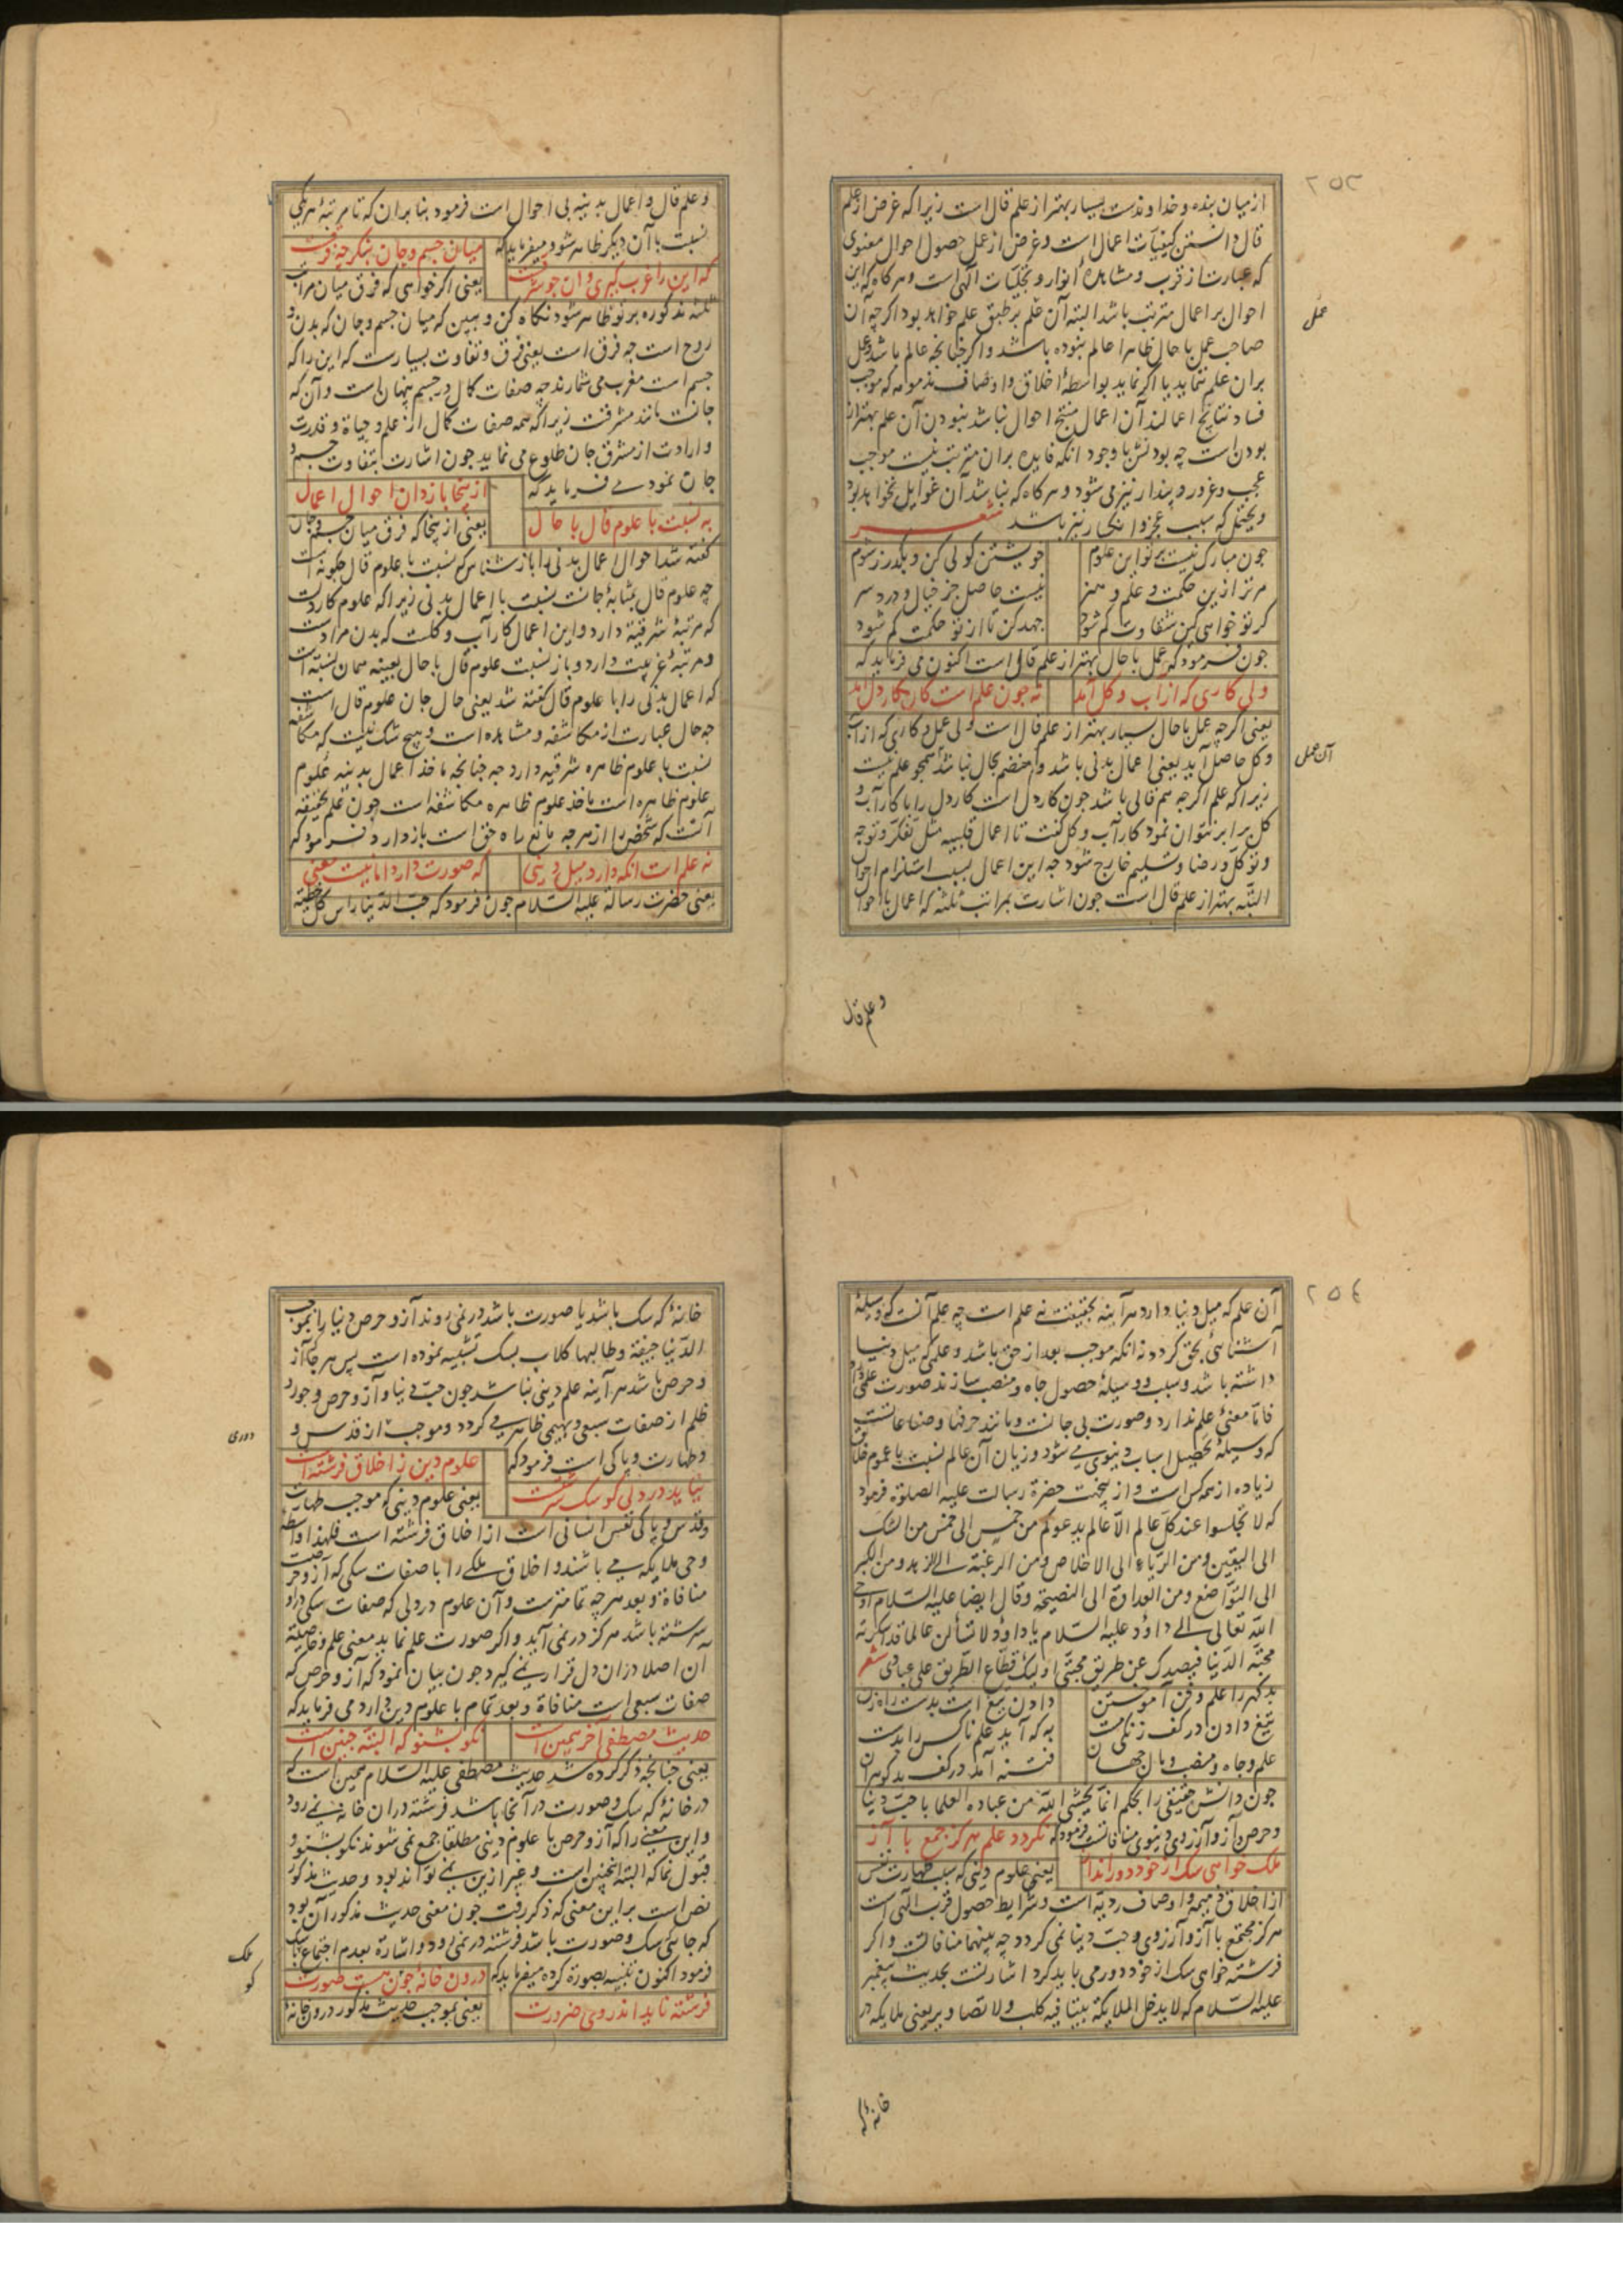 ٢٥٣
از میان بنده و خداوندست بسیار بهتر از علم قال است زیرا که غرض از علم
قال دانستن کیفیّات اعمال است و غرض از عمل حصول احوال معنوی
که عبارت از قرب و مشاهدهٔ انوار و تجلیّات آلهی است و هرکاه که این
احوال بر اعمال مترتب باشد البته آن عمل بر طبق علم خواهد بود اکرچه آن
عمل
صاحب عمل با حال ظاهرا عالم نبوده باشد و اکر چنانچه عالم باشد و عمل
بران علم ننماید یا اکر نماید بواسطهٔ اخلاق و اوصاف ذمومه که موجب
فساد نتایج اعمالند آن اعمال منتج احوال نباشد نبودن آن علم بهتر از
بودن است چه بودنش با وجود آنکه فایده بران مترتب نیست موجب
عجب و غرور و پندار نیز می شود و هرکاه که نباشد آن غوایل نخواهد بود
و یحتمل که سبب عجز و انکسار نیز باشد شعر
چون مبارک نیست بر تو این علوم خویشتن کولی کن و بکذر ز شوم
مر ترا زین حکمت و علم و هنر نیست حاصل جز خیال و درد سر
کر تو خواهی کین شقاوت کم شود جهد کن تا از تو حکمت کم شود
چون فرمود که عمل با حال بهتر از علم قال است اکنون می فرماید که
ولی کاری که از آب و کل آید نه چون علم است کان کار دل آید
یعنی اکرچه عمل با حال بسیار بهتر از علم قال است ولی عمل و کاری که از آب
و کل حاصل آید یعنی اعمال بدنی باشد و منضم بحال نباشد همچو علم نیست
آن عمل
زیرا که علم اکرچه هم قالی باشد چون کار دل است کار دل را با کار آب و
کل برابر نتوان نمود کار آب و کل کفت تا اعمال قلبیه مثل تفکّر و توجه
و توکّل و رضا و تسلیم خارج شود چه این اعمال بسبب استلزام احوال
البتّه بهتر از علم قال است چون اشارت بمراتب ثلثه که اعمال با احوال
و علم قال
و علم قال و اعمال بدنیه بی احوال است فرمود بنا بران که تا مرتبهٔ هر یکی
نسبت با آن دیکر ظاهر شود میفرماید که میان جسم و جان بنکر چه فرقست
که این را غرب کیری و ان چو شرقست یعنی اکر خواهی که فرق میان مراتب
ثلثه مذکوره بر تو ظاهر شود نکاه کن و ببین که میان جسم و جان که بدن و
روح است چه فرق است یعنی فرق و تفاوت بسیارست که این را که
جسم است مغرب می شمارند چه صفات کمال در جسم پنهان است و آن که
جانست مانند مشرقست زیرا که همه صفات کمال از علم و حیاة و قدرت
و ارادت از مشرق جان طلوع می نماید چون اشارت بتفاوت جسم و
جان نمود می فرماید که از اینجا باز دان احوال اعمال
به نسبت با علوم قال با حال یعنی از اینجا که فرق میان جسم و جان
کفته شد احوال اعمال بدنی را باز شناس که نسبت با علوم قال چکونه است
چه علوم قال بمثابهٔ جانست نسبت با اعمال بدنی زیرا که علوم کار دلست
که مرتبهٔ شرقیة دارد و این اعمال کار آب و کلست که بدن مرادست
و مرتبهٔ غربیت دارد و باز نسبت علوم قال با حال بعینه همان نسبتست
که اعمال بدنی را با علوم قال کفته شد یعنی حال جان علوم قال است
چه حال عبارت از مکاشفه و مشاهده است و هیچ شک نیست که مکاشفه
نسبت با علوم ظاهره شرقیه دارد چه چنانچه ماخذ اعمال بدنیه علوم
علوم ظاهره است ماخذ علوم ظاهره مکاشفه است چون علم حقیقه
آنست که شخص را از هرچه مانع راه حق است باز دارد فرمود که
نه علم است انکه دارد میل دنیی که صورت دارد اما نیست معنی
یعنی حضرت رسالة علیه السّلام چون فرمود که حبّ الدّنیا راس کل خطیئة
٢٥٤
آن علم که میل دنیا دارد هر آینه بحقیقت نه علم است چه علم آنست که وسیلهٔ
آشنائی بحق کردد نه انکه موجب بعد از حق باشد و علمی که میل دنیا
داشته باشد و سبب و وسیلهٔ حصول جاه و منصب سازند صورت علمی دارد
فامّا معنیٔ علم ندارد و صورت بی جانست و مانند حرفها و صناعاتست
که وسیلهٔ تحصیل اسباب دنیوی می شود و زیان آن عالم نسبت با عموم خلایق
زیاده از همه کس است و از اینجهت حضرة رسالت علیه الصلوة فرمود
که لا تجلسوا عند کلّ عالم الّا عالم یدعوکم من خمس الی خمس من الشک
الی الیقین ومن الرّیاء الی الاخلاص ومن الرغبة الی الزهد ومن الکبر
الی التّواضع ومن العداوة الی النصیحة وقال ایضا علیه السّلام اوحی
اللّه تعالی الی داؤد علیه السّلام یا داود لا تسألن عالما قد اسکرته
محبّة الدّنیا فیصدک عن طریق محبّتی اولئک قطّاع الطّریق علی عبادی شعر
بد کهر را علم و فن آموختن دادن تیغ است بدست راه زن
تیغ دادن در کف زنکی مست به که آید علم ناکس را بدست
علم و جاه و منصب و مال جهان فتنه آمد در کف بد کوهران
چون دانش حقیقی را بحکم انّما یخشی اللّه من عباده العلما با حبّ دنیا
و حرص و آز و آرزوی دنیوی منافاتست فرمود که نکردد علم هرکز جمع با آز
ملک خواهی سک از خود دور انداز یعنی علوم دینی که سبب طهارت نفس
از اخلاق ذمیمه و اوصاف ردیّه است و شرایط حصول قرب آلهی است
هرکز مجتمع با آز و آرزوی و حبّ دنیا نمی کردد چه بینهما منافاتست و اکر
فرشته خواهی سک از خود دور می باید کرد اشارتست بحدیث پیغمبر
علیه السّلام که لا یدخل الملایکة بیتا فیه کلب ولا تصاویر یعنی ملایکه در
خانهٔ که
خانهٔ که سک باشد یا صورت باشد در نمی روند آز و حرص دنیا را بموجب
الدّنیا جیفة وطالبها کلاب بسک تشبیه نموده است پس هرجا آز
و حرص باشد هر آینه علم دینی نباشد چون حبّ دنیا و آز و حرص و جور و
ظلم از صفات سبعی و بهیمی ظاهر می کردد و موجب از قدس و
دوری
و طهارت و پاکی است فرمود که علوم دین ز اخلاق فرشته است
نیاید در دلی کو سک سرشتست یعنی علوم دینی که موجب طهارت
و قدس و پاکی نفس انسانی است از اخلاق فرشته است فلهذا واسطه
وحی ملایکه می باشند و اخلاق ملکی را با صفات سکی که آز و حرصست
منافاة و بعد هرچه تمامترست و آن علوم در دلی که صفات سکی در او
سرشته باشد هرکز در نمی آید و اکر صورت علم نماید معنی علم و خاصیّة
آن اصلا دران دل قرار نمی کیرد چون بیان نمود که آز و حرص که
صفات سبعی است منافاة و بعد تمام با علوم دین دارد می فرماید که
حدیث مصطفی آخر همین است نکو بشنو که البتّه چنین است
یعنی چنانچه ذکر کرده شد حدیث مصطفی علیه السّلام همین است که
در خانهٔ که سک و صورت در آنجا باشد فرشته دران خانه نمی رود
و این معنی را که آز و حرص با علوم دینی مطلقا جمع نمی شوند نکو بشنو و
قبول نما که البته اینچنین است و غیر ازین نمی تواند بود و حدیث مذکور
نص است برین معنی که ذکر رفت چون معنی حدیث مذکور آن بود
که جائی که سک و صورت باشد فرشته در نمی رود و اشارة بعدم اجتماع با سک
ملک
کو
فرمود اکنون تنبیه بصورة کرده میفرماید که درون خانهٔ چون هست صورت
فرشته ناید اندروی ضرورت یعنی بموجب حدیث مذکور در درون خانهٔ